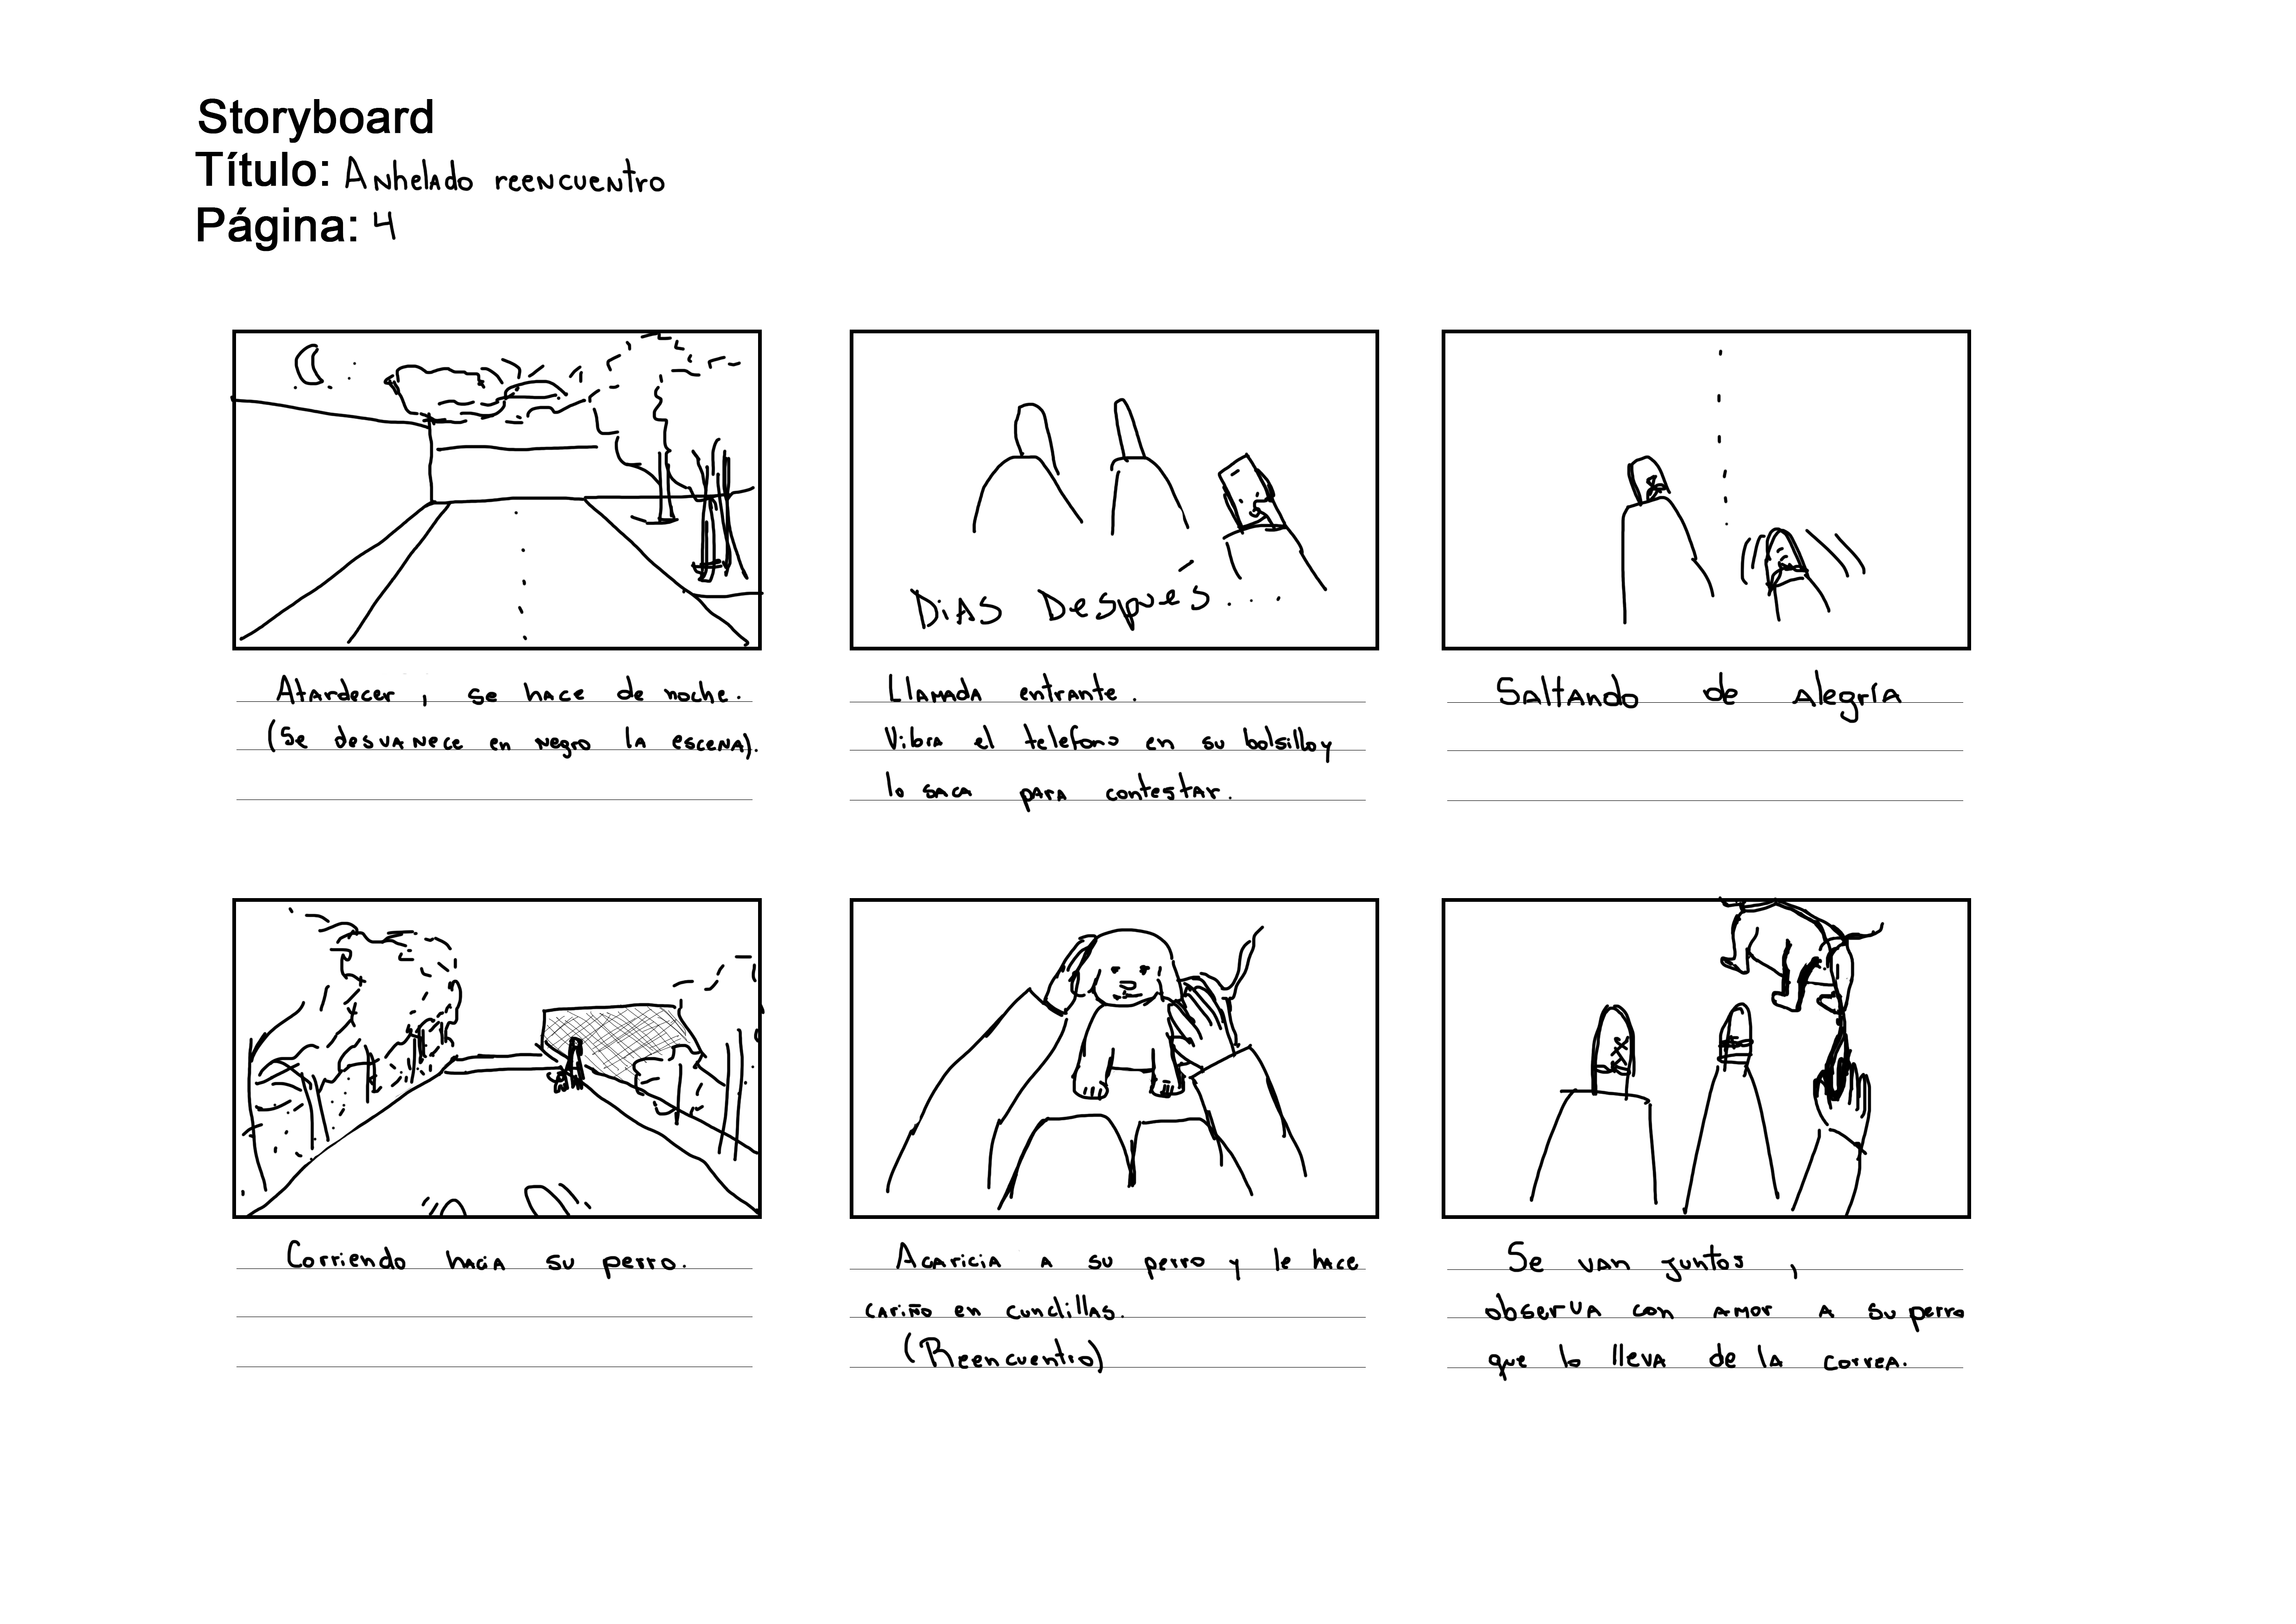 Storyboard
Título: Anhelado reencuentro
Página: 4
Días Después...
Atardecer, se hace de noche.
(Se desvanece en negro la escena).
Llamada entrante.
Vibra el telefono en su bolsillo y
lo saca para contestar.
Saltando de alegría
Corriendo hacia su perro.
Acaricia a su perro y le hace
cariño en cunclillas.
(Reencuentro)
Se van juntos,
observa con amor a su perro
que lo lleva de la correa.